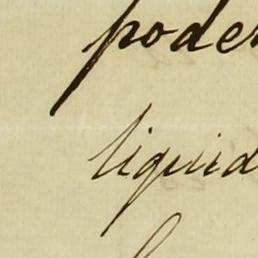 poder
liquid